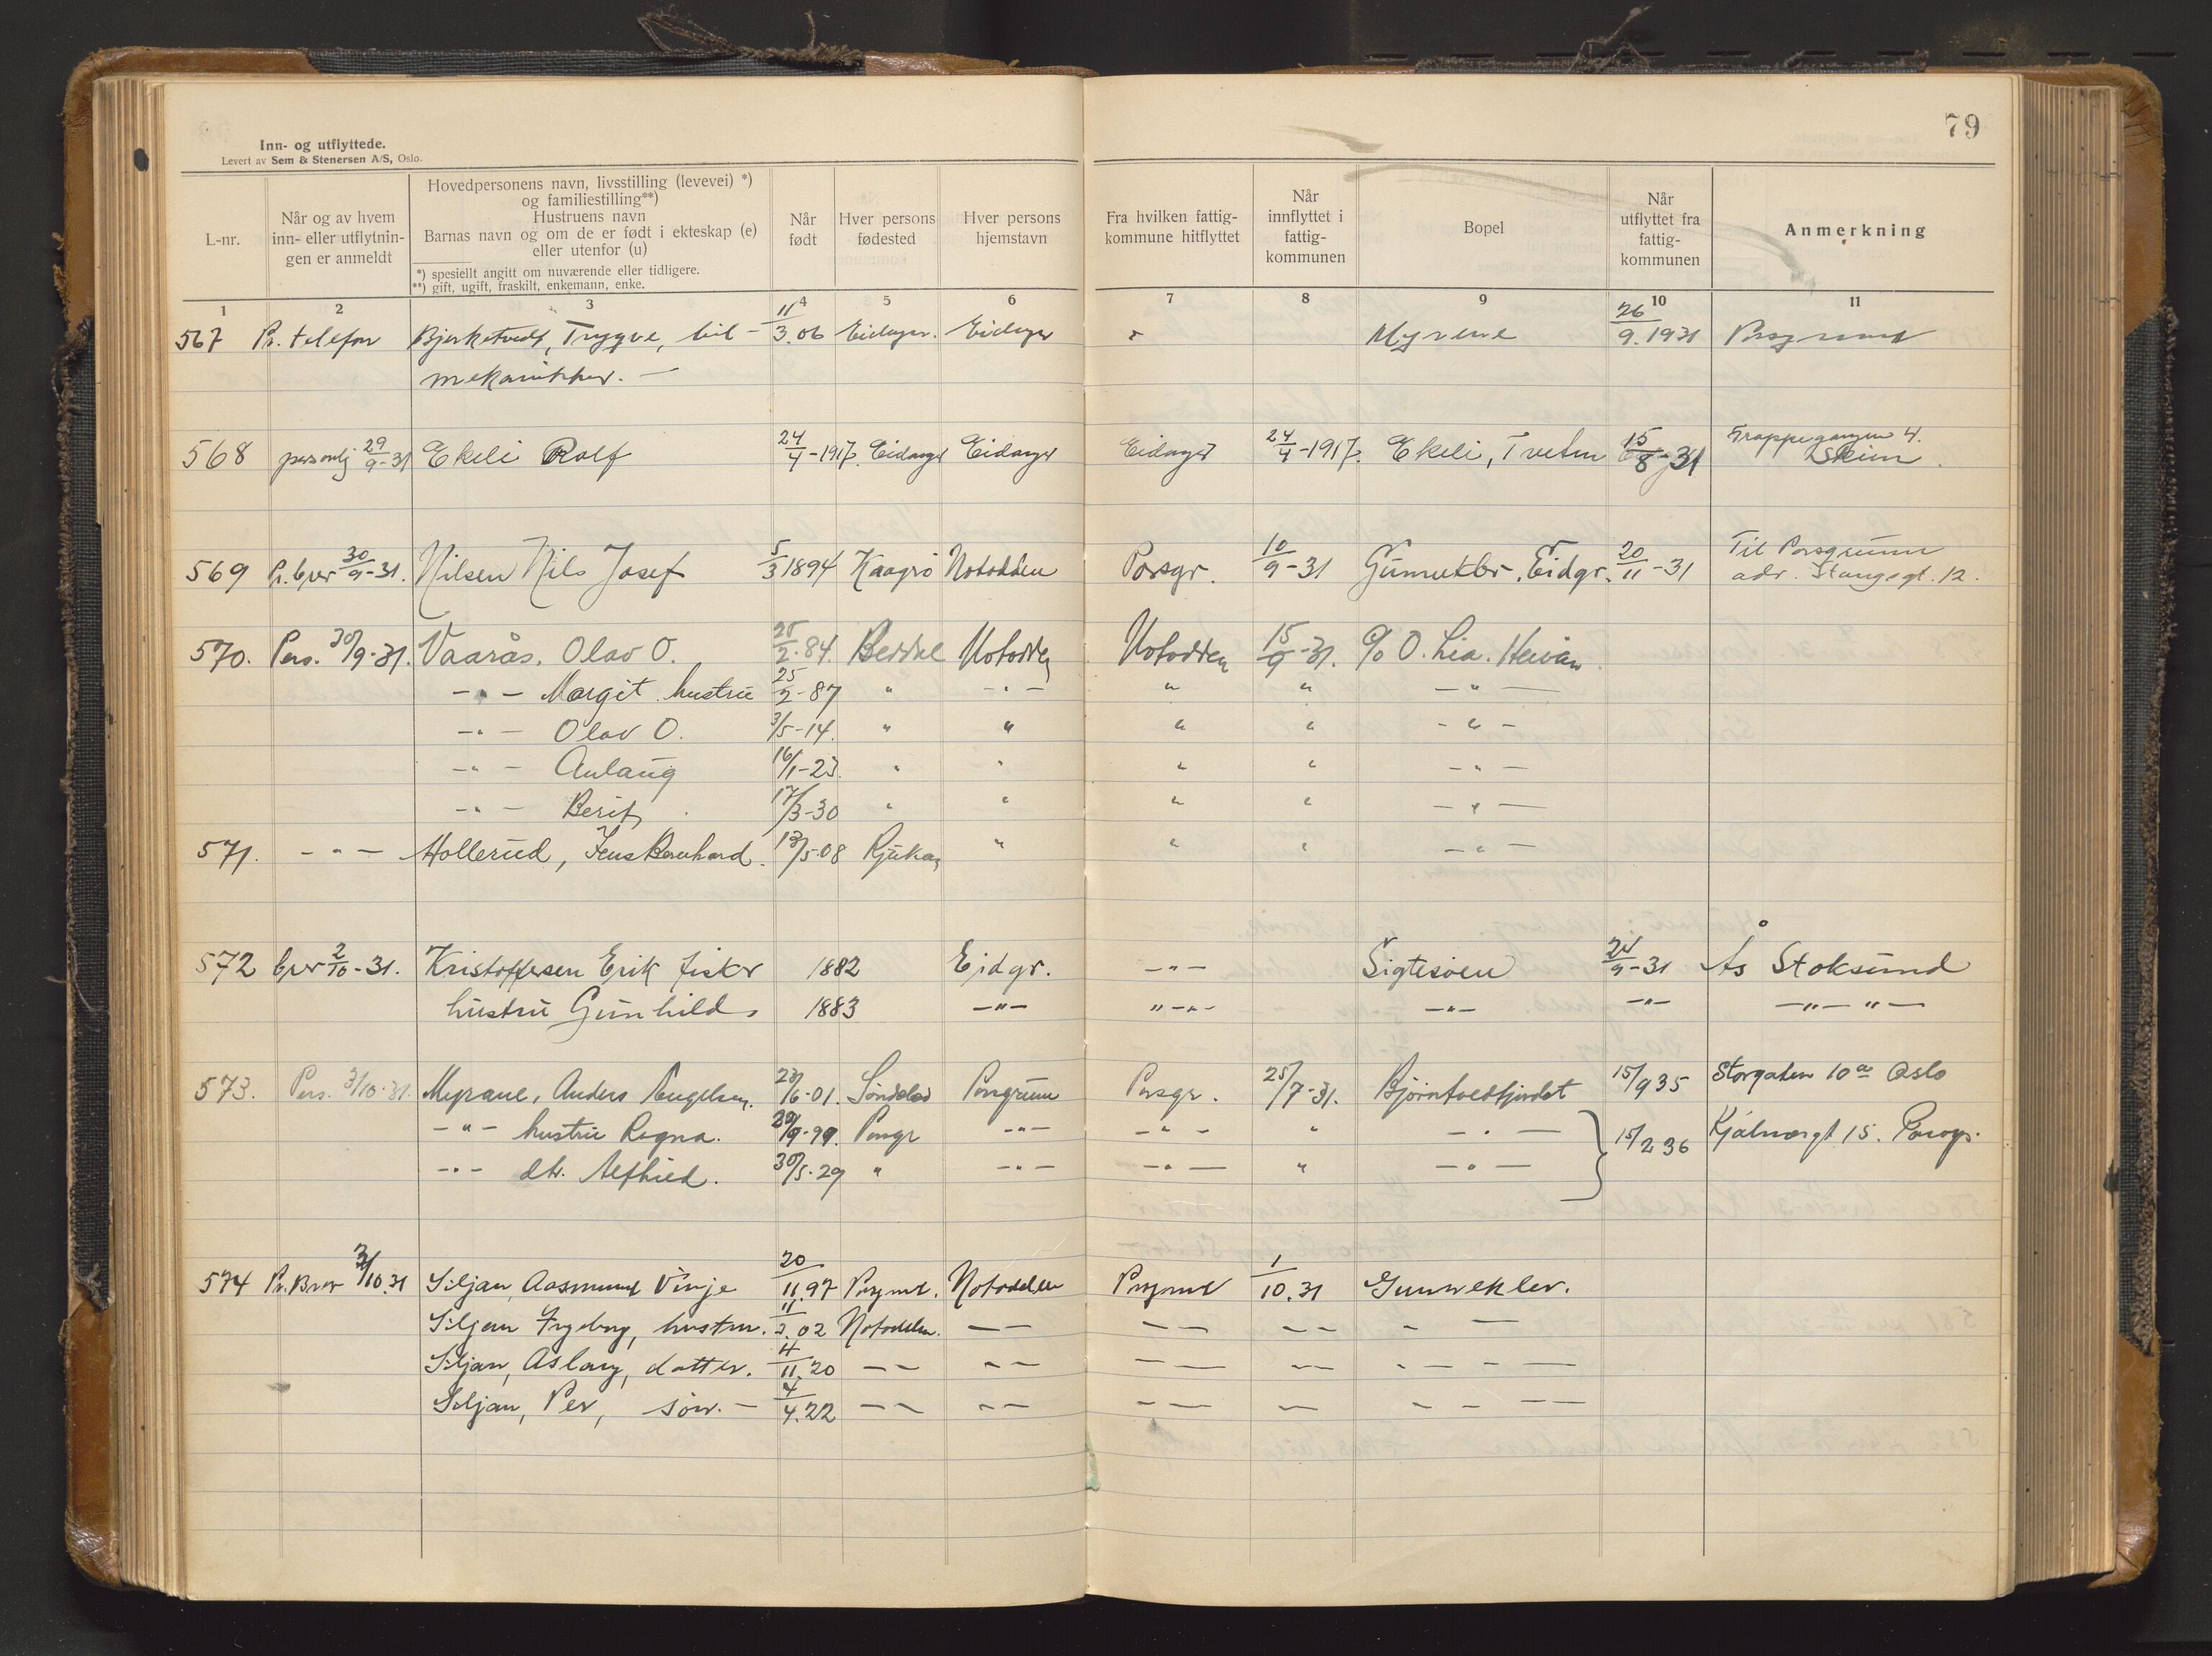 79
Inn- og utflyttede.
Levert av Sem & Stenersen A/S, Oslo.
L-nr.
Når og av hvem inn- eller utflytnin-gen er anmeldt
Hovedpersonens navn, livsstilling (levevei) *)
og familiestilling**)
Hustruens navn
Barnas navn og om de er født i ekteskap (e)
eller utenfor (u)
*) spesiellt angitt om nuværende eller tidligere.
**) gift, ugift, fraskilt, enkemann, enke.
Når født
Hver persons fødested
Hver persons hjemstavn
Fra hvilken fattig-kommune hitflyttet
Når innflyttet i fattig-kommunen
Bopel
Når utflyttet fra fattig-kommunen
Anmerkning
1 2 3 4 5 6 7 8 9 10 11
567 Pr. telefon Bjerketvedt, Trygve, bil- 11/3.06 Eidanger. Eidanger Myrene 26/9.1931 Porsgrund
mekanikker. —
568 personlig 29/9-31 Ekeli Rolf 24/4-1917. Eidanger Eidanger Eidanger 24/4-1917. Ekeli, Tveten 15/8-31 Trappegangen 4.
Skien.
569 Pr. brev 30/9-31. Nilsen Nils Josef 5/3 1894 Notodden Porsgr. 10/9-31 Gunneklev, Eidgr. 20/11-31 Til Porsgrunn
adr. Stangsgt. 12.
570. Pers. 30/9-31. Vaarås. Olav O. 25/2-84. Notodden Notodden 15/9-31. c/o O. Lia. Heivan
-"- Margit hustru 25/2-87 " -"- " " -"-
-"- Olav O. 3/5-14. " " " " -"-
-"- Aulaug 16/1-23. " " " " -"-
-"- Berit 17/3-30 " " " " -"-
571. -"- Hollerud, Jens Bernhard. 13/5.08 Rjukan " " " -"-
572 brev 2/10-31. Kristoffersen Erik fisker 1882 Eidgr. -"- Sigtesøen 24/9-31 Ås Stoksund
hustru Gunhild 1883 -"- "-"- -"- -"- -"- "-
573. Pers. 3/10-31. Myrane, Anders Engelsen. 23/6-01. Søndeled Porsgrunn Porsgr. 25/7-31. Bjørntvedtfjordet 15/9 35 Storgaten 10a Oslo
-"- hustru Ragna. Porsgr -"- -"- " -"- 15/2 36 Kjølnesgt 15. Porsgr.
-"- dtr. Alfhild. 30/5-29 " -"- -"- " -"-
574 Pr. Brev 3/10.31 Siljan, Aasmund Vinje 20/11.97 Porsgrund. Notodden Porsgrund 1/10.31 Gunneklev.
Siljan Ingeborg, hustru. 11/2.02 Notodden. — — — — — — — —
Siljan, Aslaug, datter. 4/11.20 — — — — — — — — — — — —
Siljan, Per, sønn. — 4/4.22 — — — — — — — — — — —